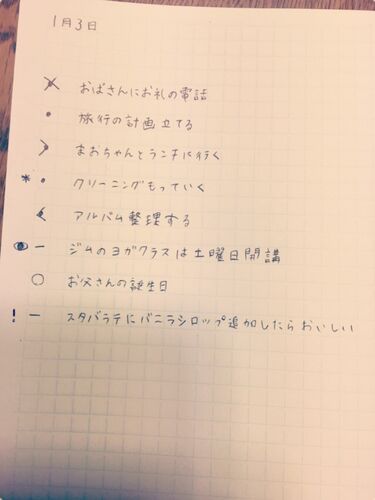 1月3日
× おばさんにお礼の電話
• 旅行の計画立てる
> まおちゃんとランチに行く
* • クリーニングもっていく
< アルバム整理する
👁 – ジムのヨガクラスは土曜日開講
○ お父さんの誕生日
! – スタバラテにバニラシロップ追加したらおいしい